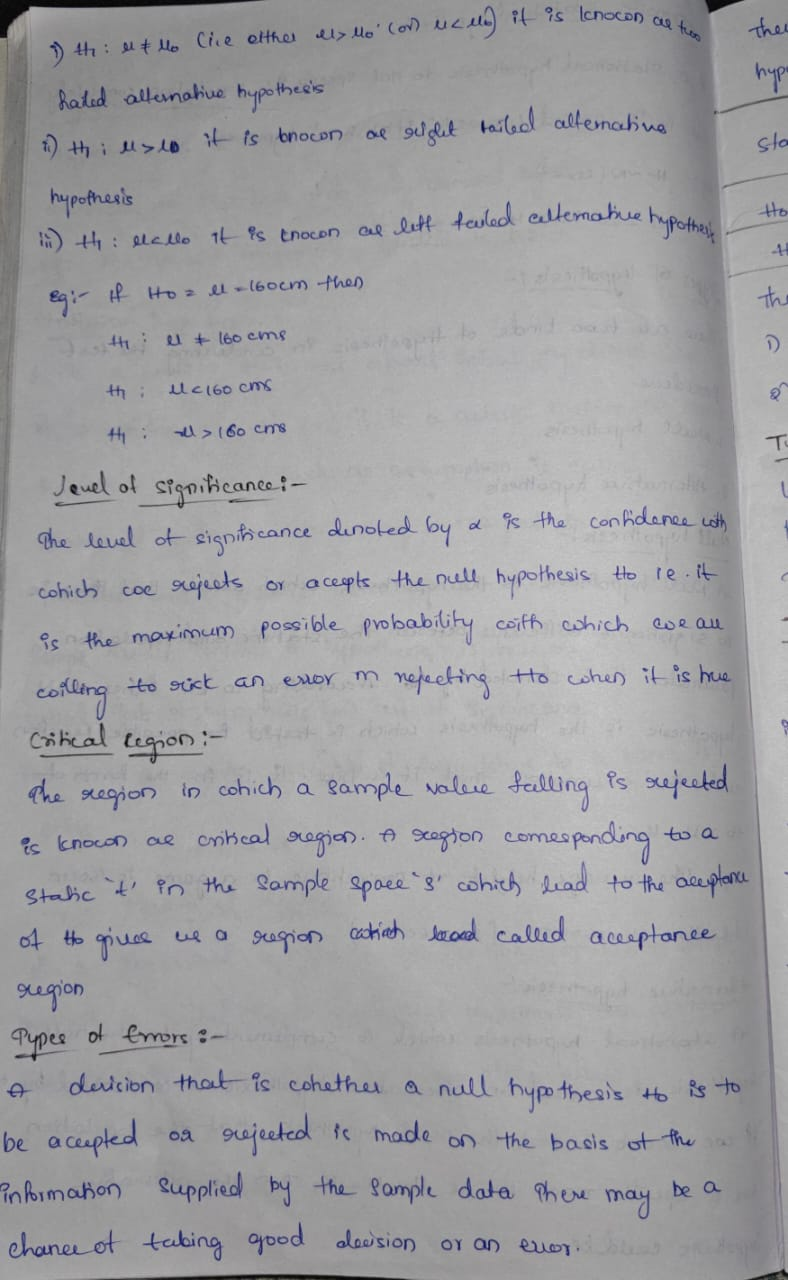 i) H1 : μ ≠ μ0 (i.e either μ > μ0 (or) μ < μ0) it is known as two
tailed alternative hypothesis
ii) H1 : μ > μ0 it is known as right tailed alternative
hypothesis
iii) H1 : μ < μ0 it is known as left tailed alternative hypothesis
Eg:- If H0 = μ = 160cm then
H1 : μ ≠ 160 cms
H1 : μ < 160 cms
H1 : μ > 160 cms
Level of significance:-
The level of significance denoted by α is the confidence with
which we rejects or accepts the null hypothesis H0 i.e. it
is the maximum possible probability with which we are
willing to risk an error in rejecting H0 when it is true
Critical region:-
The region in which a sample value falling is rejected
is known as critical region. A region corresponding to a
static 't' in the sample space 's' which lead to the acceptance
of H0 gives us a region called acceptance
region
Types of Errors:-
A decision that is whether a null hypothesis H0 is to
be accepted or rejected is made on the basis of the
information supplied by the sample data There may be a
chance of taking good decision or an error.
the
hyp
sta
H0
H
th
i)